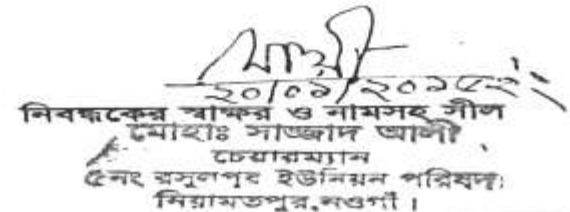 ২০/০১/২০১৫ইং
নিবন্ধকের স্বাক্ষর ও নামসহ সীল
মোহাঃ সাজ্জাদ আলী
চেয়ারম্যান
৫নং রসুলপুর ইউনিয়ন পরিষদ।
নিয়ামতপুর,নওগাঁ।